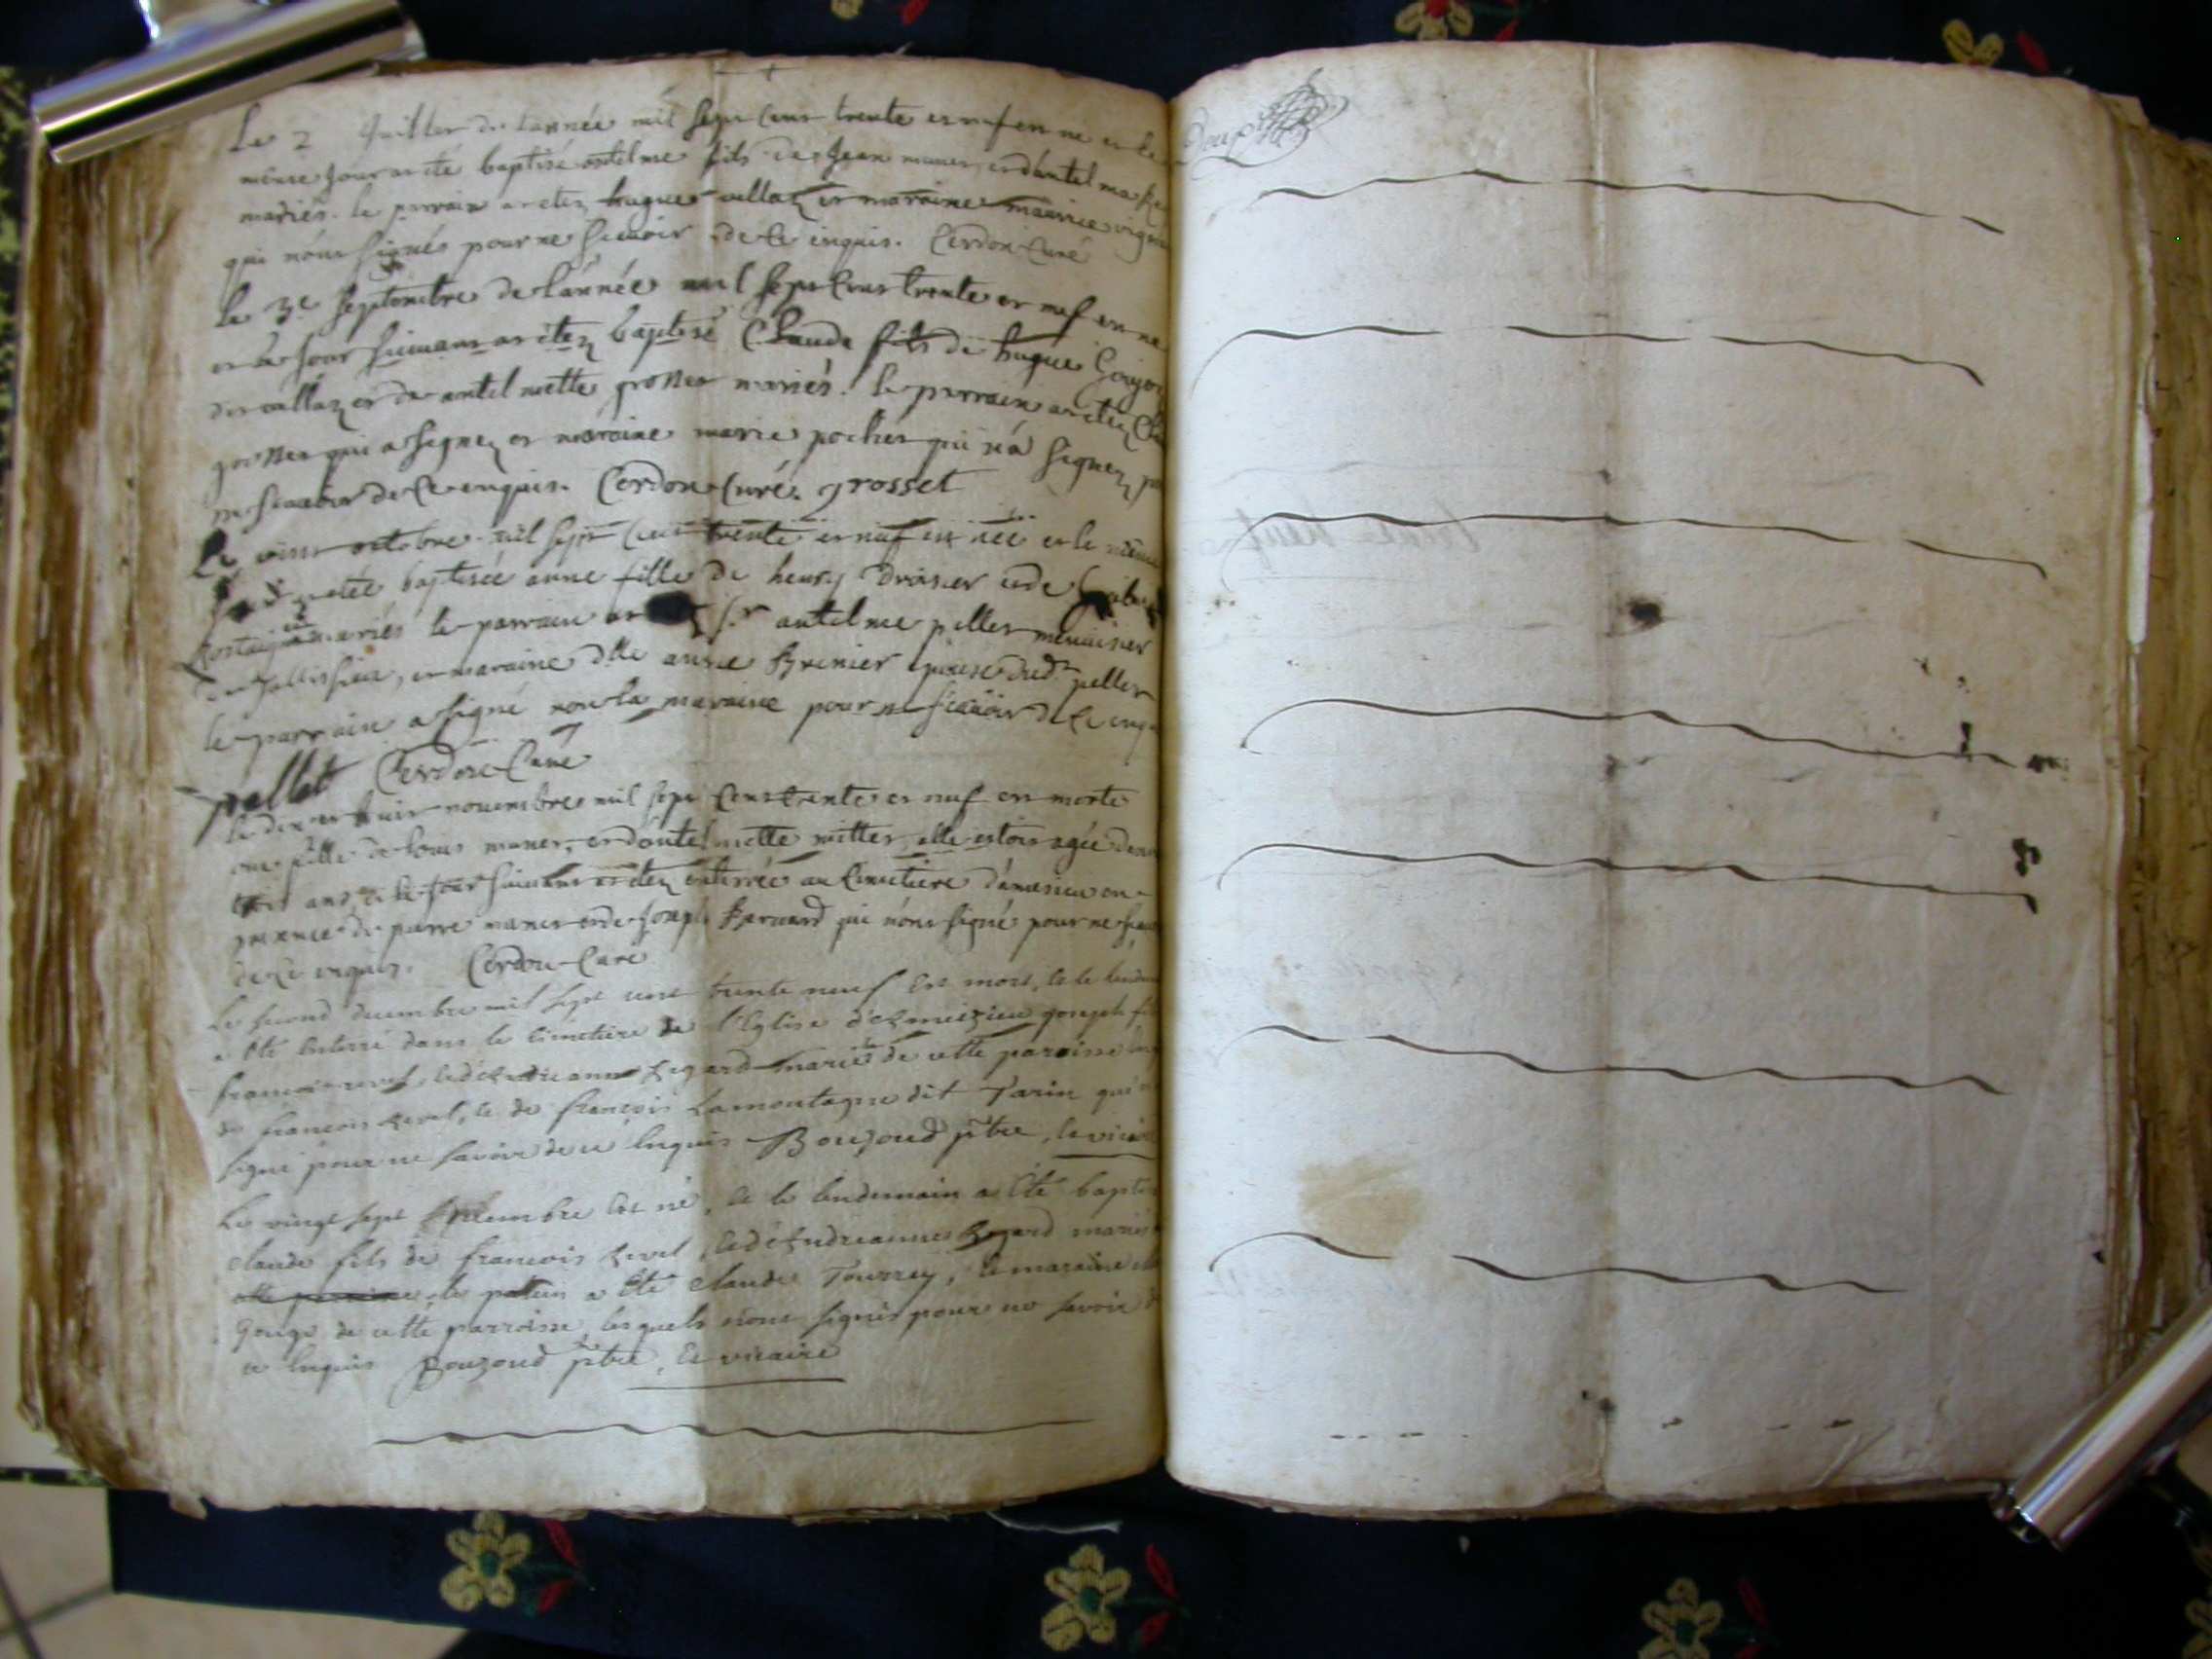 Le 2 Juillet de lannée mil sept cent trente et neuf en ne et le
même jour at eté baptisé antelme fils de Jean maner, et dantelma
mariés. le parrain at etez hugue vallaz et maraine maurice
qui n'ont signés pour ne scauoir de ce enquis. Cerdon Curé
le 3e septembre de l'année mil sept cent trente et neuf en ne
et le jour suiuant at etez baptisé Claude fils de hugue Goujon
de vallaz et de antelmette grosset mariés. le parrain at etez
grosset qui a signez et maraine marie pochet qui n'a signez
ne scauoir de ce enquis. Cerdon Curé. grosset
Le vint octobre mil sept cent trente et neuf est née et le même
jour at etée baptisée anne fille de henry Droisier et de
mariés le parrain at Sr antelme pellet menuisier
, et maraine dlle anne Grenier epouse dudt pellet
le parrain a signé non la maraine pour ne scauoir de ce enq
pellet Cerdon Curé
le dix et huit nouembre mil sept cent trente et neuf est morte
une fille de louis maner, et dantelmette mittet, elle estoit agée den
trois ans, et le jour suiuant at etez enterrée au cimetiere damesieu en
presence de pierre maner et de Joseph Bernard qui n'ont signé pour ne
de ce enquis. Cerdon Curé
Le second decembre mil sept cent trente neuf est mort, et le
a été enterré dans le cimetiere de l'Eglise d'ezmeizieu joseph
francois revel, et d'Andrieanne Regard mariés de cette paroisse
de francois Revel, et de françois Lamontagne dit Tarin qui
signé pour ne savoir de ce enquis Bouzoud ptre, et vicaire
Le vingt sept decembre est né, et le lendemain a été
claude fils de francois Revel, et d'Andrieanne Regard mariés
le parrain a été claude Tourrey, et maraine
Gouge de cette parroisse, lesquels n'ont signés pour ne savoir
ce enquis Bouzoud ptre, et vicaire